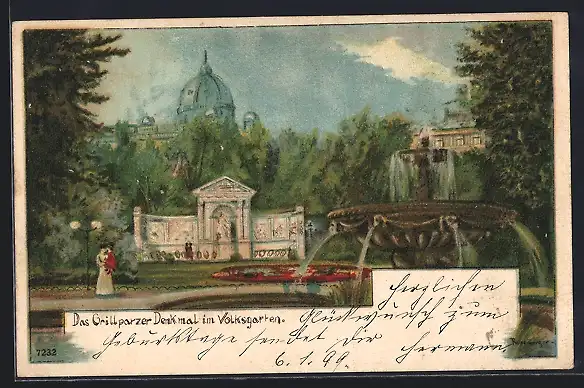 Das Grillparzer Denkmal im Volksgarten.
7232
Herzlichen
Glückwunsch zum
Geburtstage sendet dir Hermann
6.1.99.